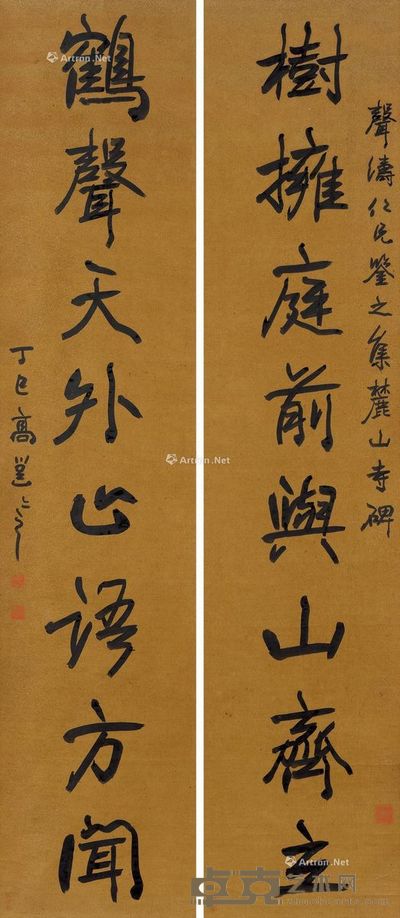 聲濤仁兄鑒之集麓山寺碑
樹擁庭前與山齊立
鶴聲天外止語方聞
丁巳高邕
Artron.Net
Artron.Net
Artron.Net
Artron.Net
卓克艺术网